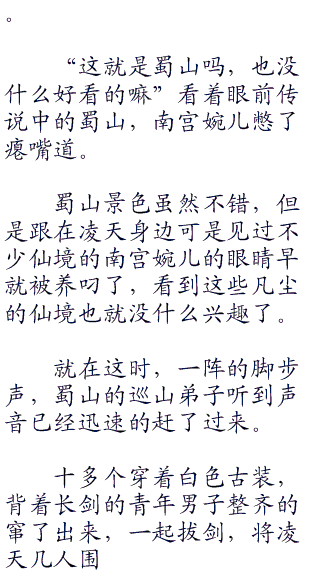 。
“这就是蜀山吗，也没
什么好看的嘛”看着眼前传
说中的蜀山，南宫婉儿憋了
瘪嘴道。
蜀山景色虽然不错，但
是跟在凌天身边可是见过不
少仙境的南宫婉儿的眼睛早
就被养叼了，看到这些凡尘
的仙境也就没什么兴趣了。
就在这时，一阵的脚步
声，蜀山的巡山弟子听到声
音已经迅速的赶了过来。
十多个穿着白色古装，
背着长剑的青年男子整齐的
窜了出来，一起拔剑，将凌
天几人围